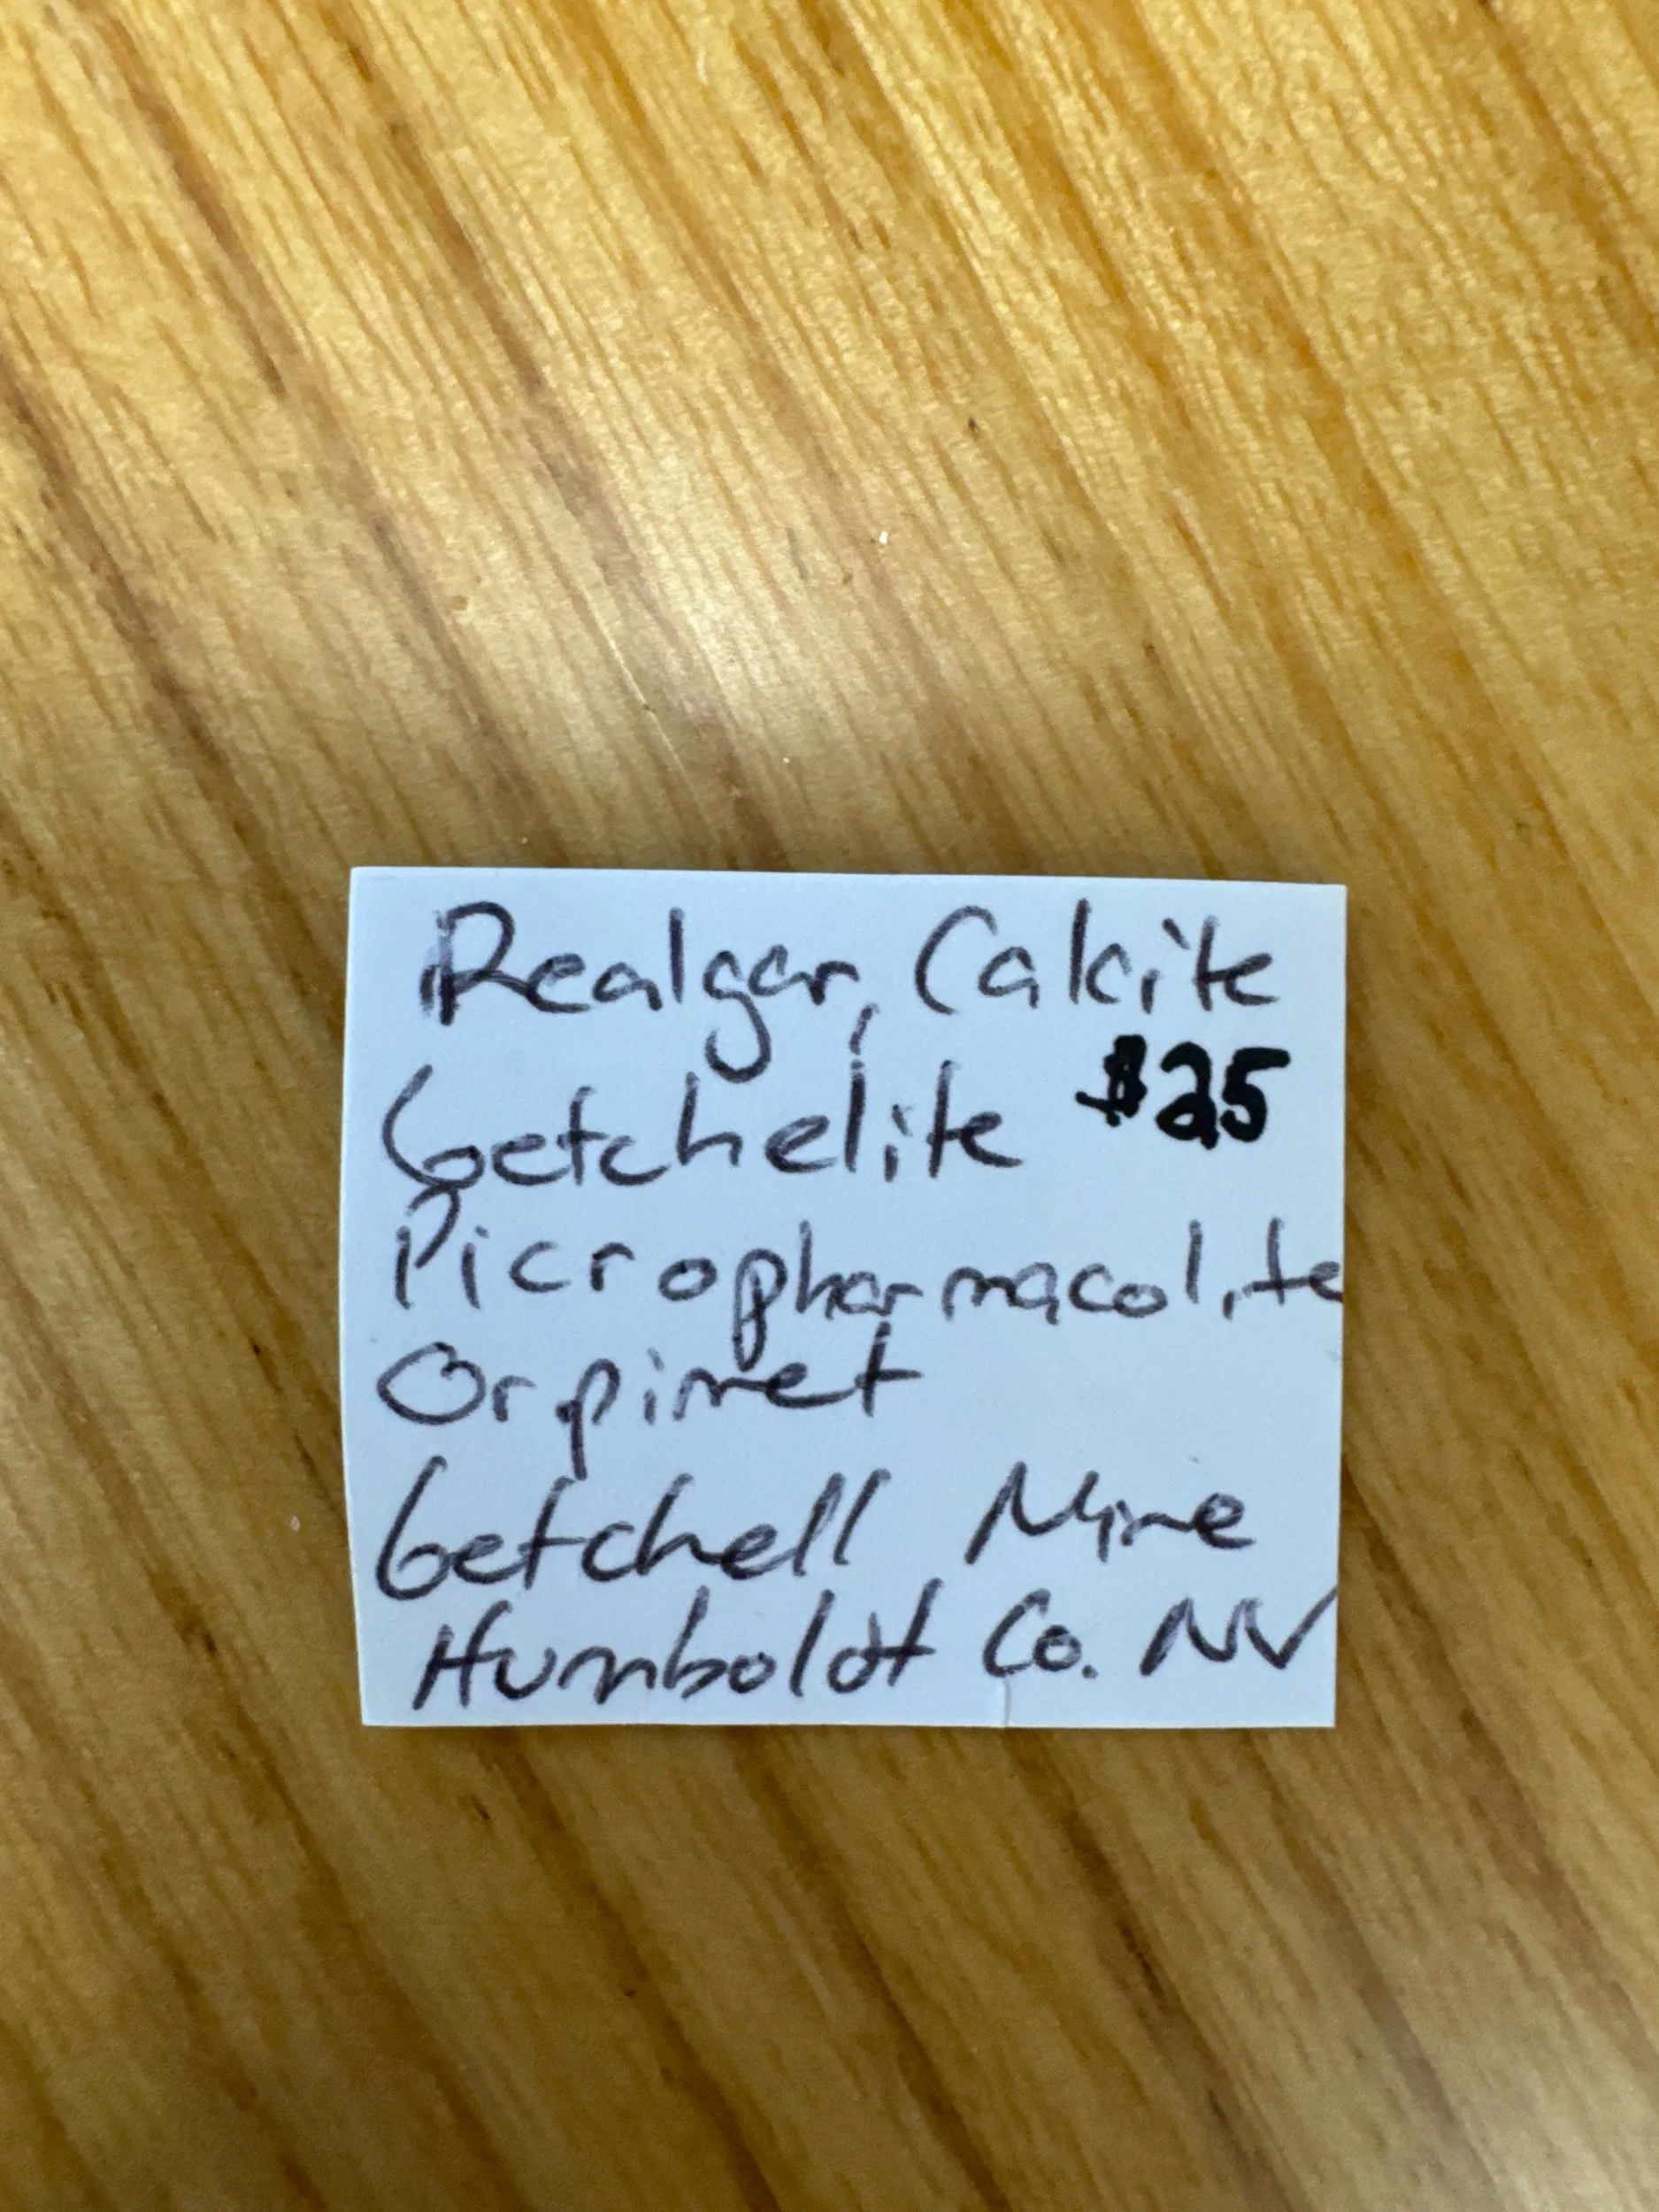 Realgar, Calcite
Getchelite $25
Picropharmacolite
Orpimet
Getchell Mine
Humboldt Co. NV